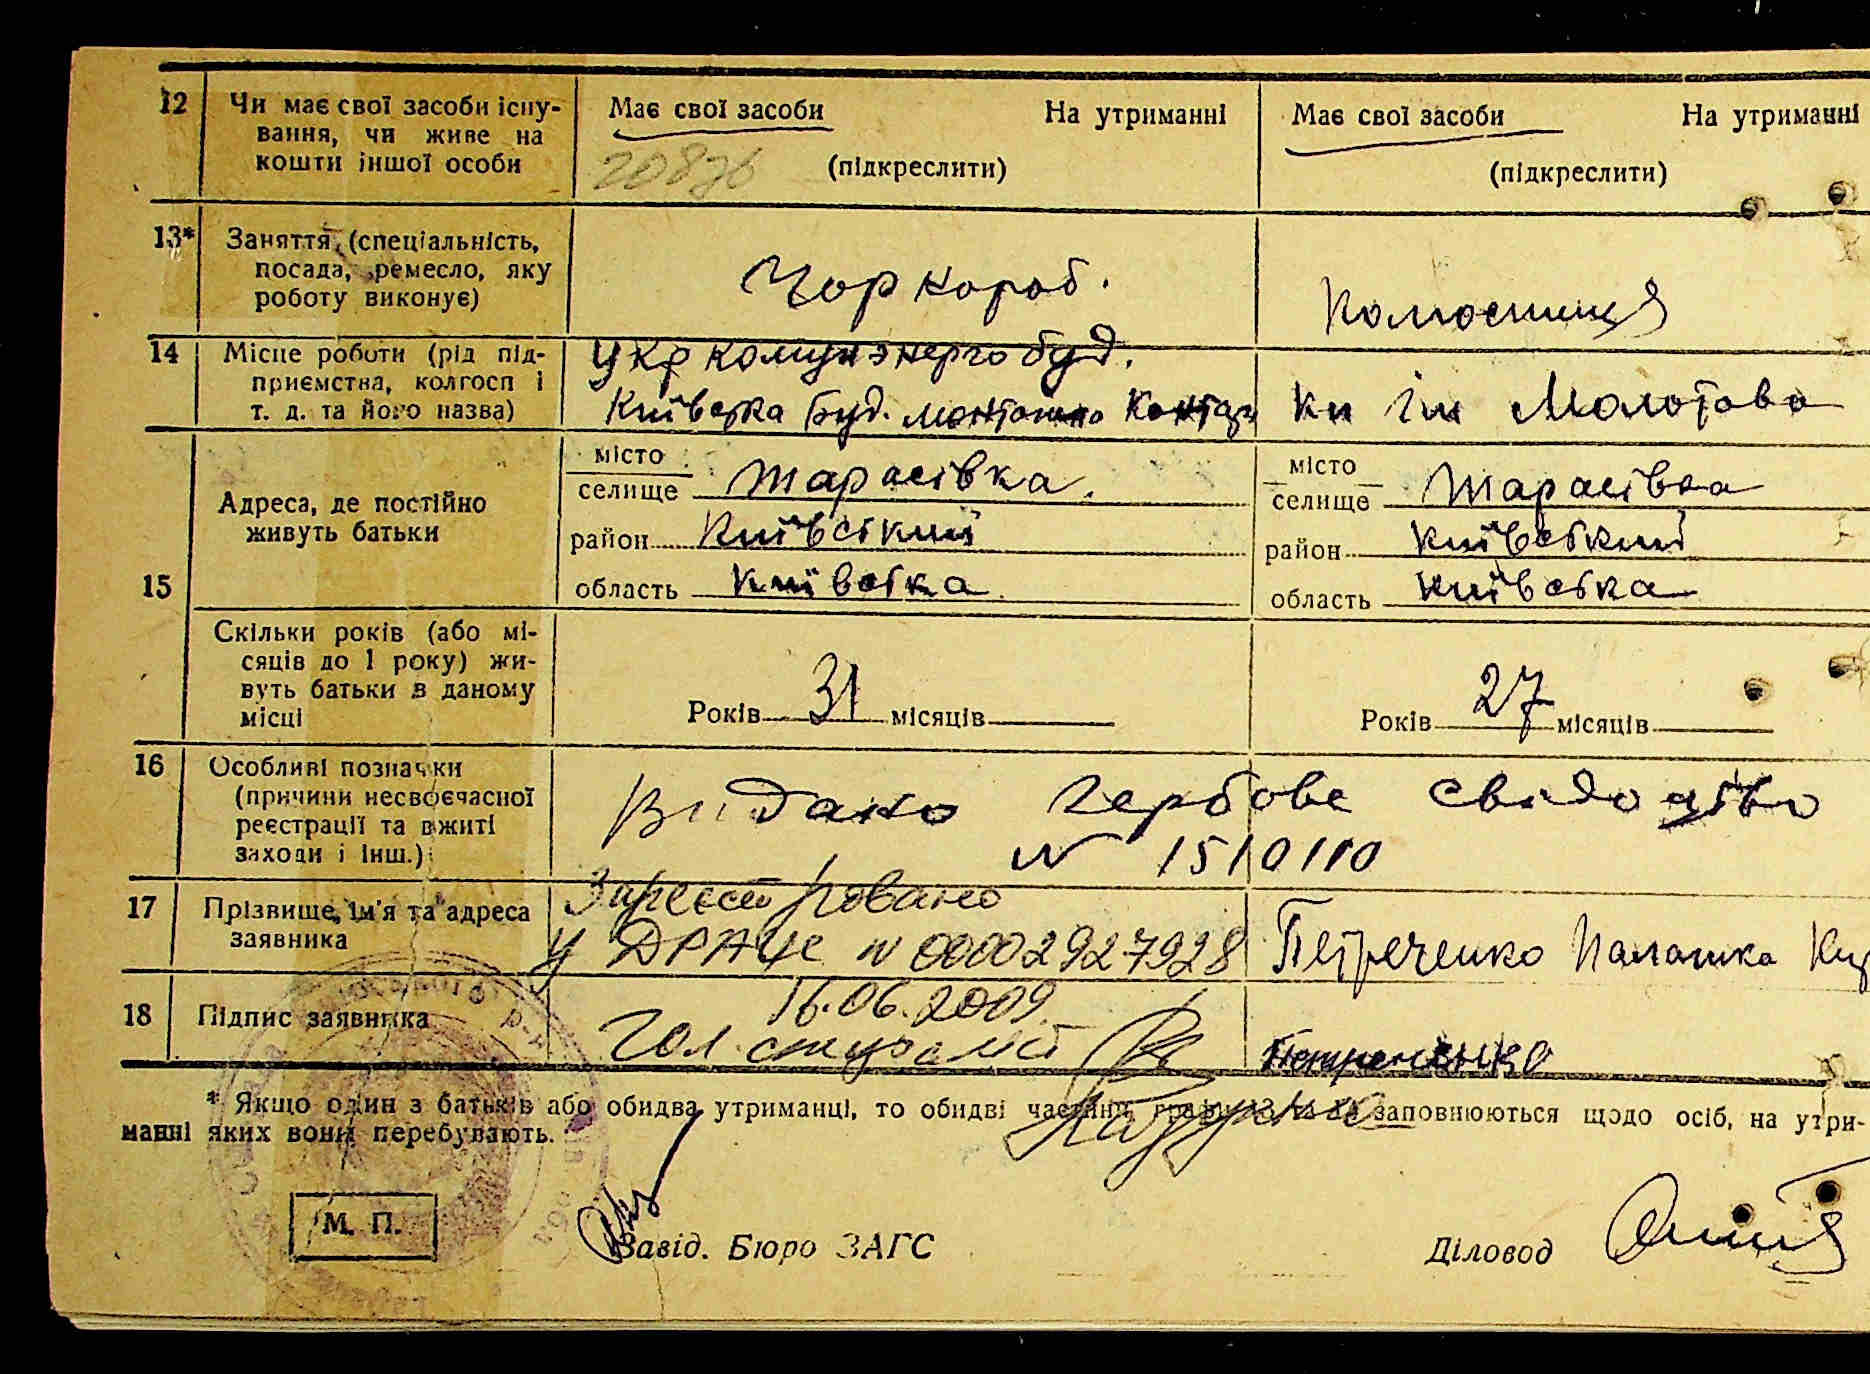 12 Чи має свої засоби існу-
вання, чи живе на
кошти іншої особи
Має свої засоби На утриманні
(підкреслити)
20876
Має свої засоби На утриманні
(підкреслити)
13* Заняття (спеціальність,
посада, ремесло, яку
роботу виконує)
Чор короб.
14 Місце роботи (рід під-
приємства, колгосп і
т. д. та його назва)
Укр комун энерго буд.
Київська буд. монтажна
Кп ім Молотова
15 Адреса, де постійно
живуть батьки
місто
селище Тарасівка.
район Київський
область Київська
місто
селище Тарасівка
район Київський
область Київська
Скільки років (або мі-
сяців до 1 року) жи-
вуть батьки в даному
місці
Років 31 місяців
Років 27 місяців
16 Особливі позначки
(причини несвоєчасної
реєстрації та вжиті
заходи і інш.)
Видано гербове свідоцтво
N 1510110
17 Прізвище, ім'я та адреса
заявника
Зареєстровано
у ДРАЦС N 00002927928
16.06.2009
Петреченко Палажка
18 Підпис заявника
Гол. спеціаліст
Петреченко
* Якщо один з батьків або обидва утриманці, то обидві частини графи 13 та 14 заповнюються щодо осіб, на утри-
манні яких вони перебувають.
М. П.
Завід. Бюро ЗАГС
Діловод